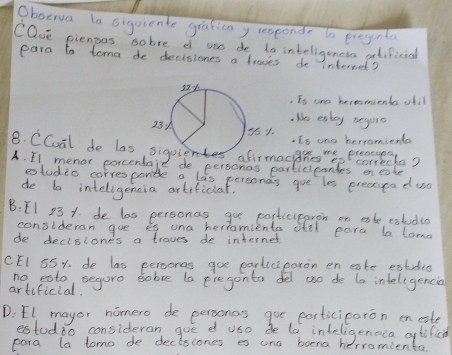 Observa la siguiente gráfica y responde la pregunta
¿Qué piensas sobre el uso de la inteligencia artificial
para la toma de decisiones a través de internet?
22%
. Es una herramienta util
23%
. No estoy seguro
55%
. Es una herramienta
que me preocupa
8. ¿Cuál de las siguientes afirmaciones es correcta?
A. El menor porcentaje de personas participantes en este
estudio corresponde a las personas que les preocupa el uso
de la inteligencia artificial.
B. El 23%. de las personas que participaron en este estudio
consideran que es una herramienta útil para la toma
de decisiones a traves de internet
C. El 55%. de las personas que participarón en este estudio
no esta seguro sobre la pregunta del uso de la inteligencia
artificial.
D. El mayor número de personas que participarón en este
estudio consideran que el uso de la inteligencia artificial
para la toma de decisiones es una buena herramienta.